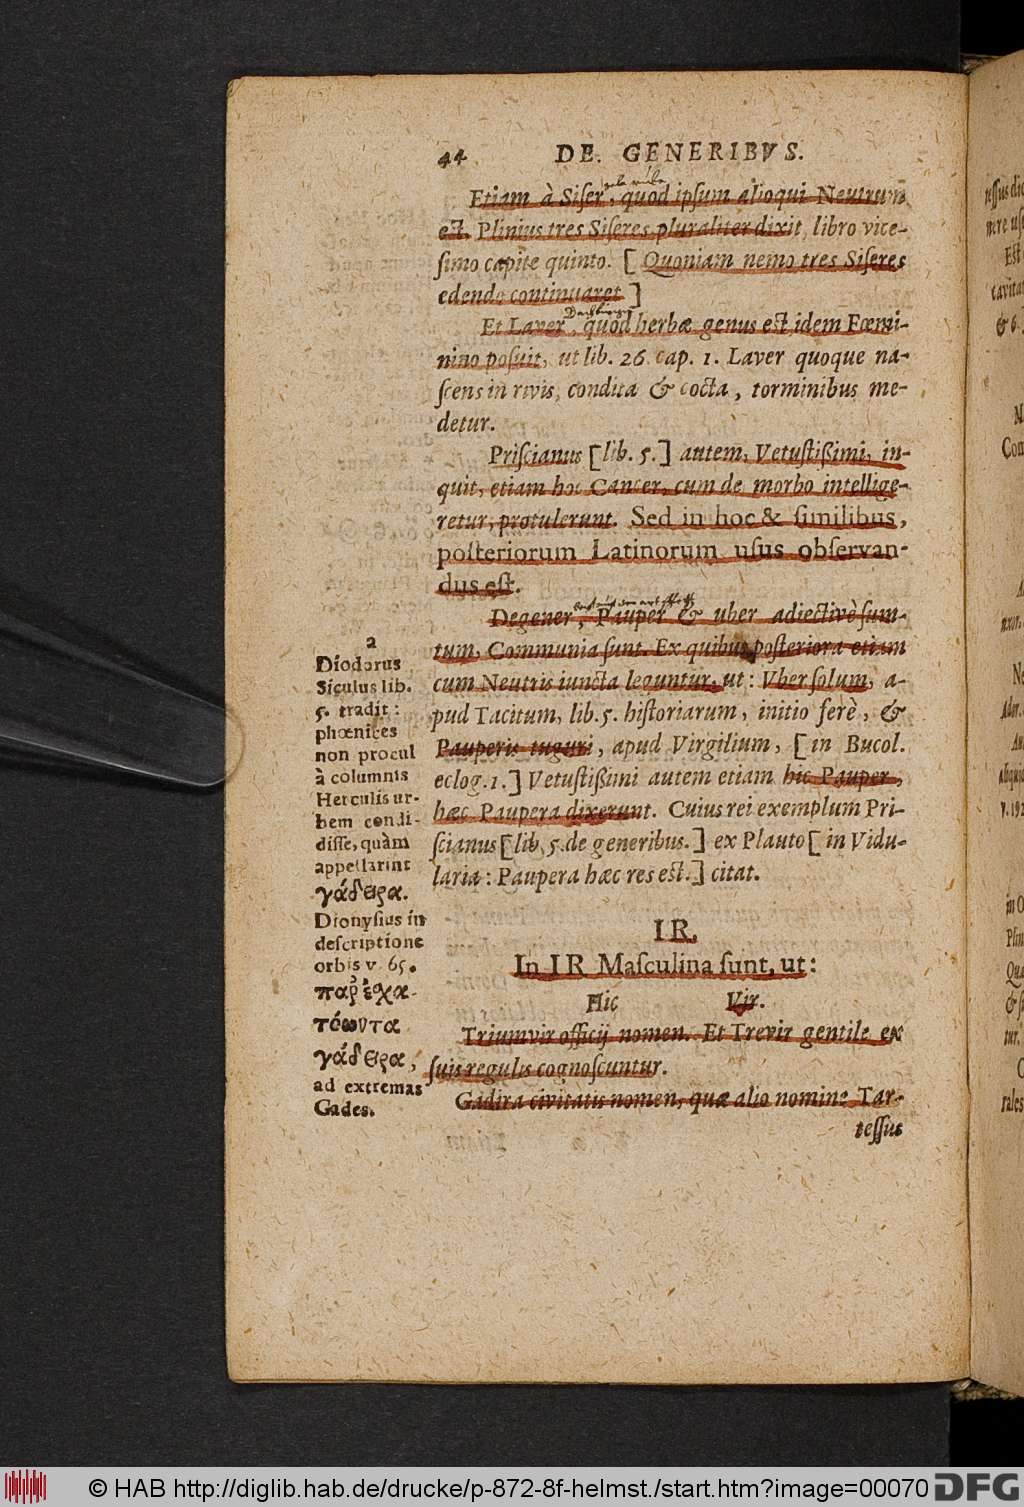 44 DE. GENERIBVS.
Etiam à Siſer, quod ipſum alioqui Neutrum
est. Plinius tres Siſeres pluraliter dixit, libro vice-
ſimo capite quinto. [ Quoniam nemo tres Siſeres
edendo continuaret ]
Et Laver, quod herbæ genus est idem Fœmi-
nino poſuit, ut lib. 26. cap. 1. Laver quoque na-
ſcens in rivis, condita & cocta, torminibus me-
detur.
Priſcianus [lib. 5.] autem, Vetuſtißimi, in-
quit, etiam hoc Cancer, cum de morbo intellige-
retur, protulerunt. Sed in hoc & ſimilibus,
poſteriorum Latinorum uſus obſervan-
dus eſt.
Degener, Pauper & uber adiectivè ſum-
tum, Communia ſunt. Ex quibus poſteriora etiam
cum Neutris iuncta leguntur, ut: Vber ſolum, a-
pud Tacitum, lib. 5. hiſtoriarum, initio ferè, &
Pauperis tuguri, apud Virgilium, [in Bucol.
eclog. 1.] Vetuſtißimi autem etiam hic Pauper,
hæc Paupera dixerunt. Cuius rei exemplum Pri-
ſcianus [lib. 5. de generibus.] ex Plauto [in Vidu-
laria: Paupera hæc res est.] citat.
IR.
In IR Maſculina ſunt, ut:
Hic Vir.
Triumvir officij nomen. Et Trevir gentile ex
ſuis regulis cognoſcuntur.
Gadira civitatis nomen, quæ alio nomine Tar-
teſſus
2
Diodorus
Siculus lib.
5. tradit:
phœnices
non procul
à columnis
Herculis ur-
bem condi-
diſſe, quàm
appellarint
γάδειρα.
Dionyſius in
deſcriptione
orbis v. 65.
παρ' ἔσχα-
τόωντα
γάδειρα,
ad extremas
Gades.
© HAB http://diglib.hab.de/drucke/p-872-8f-helmst./start.htm?image=00070 DFG